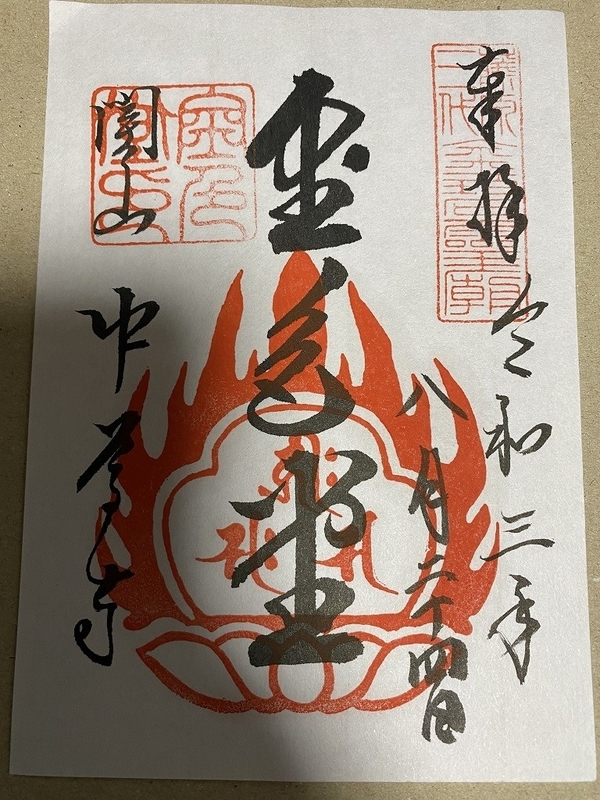 奉拝
令和三年
八月二十四日
金色堂
関山
中尊寺